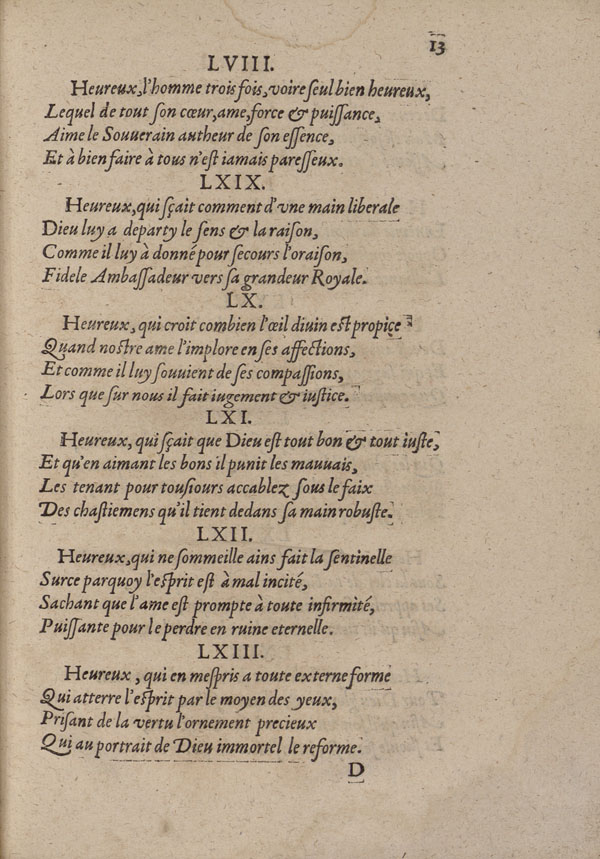 13
LVIII.
Heureux, l'homme trois fois, voire ſeul bien heureux,
Lequel de tout ſon cœur, ame, force & puiſſance,
Aime le Souuerain autheur de ſon eſſence,
Et à bien faire à tous n'eſt iamais pareſſeux.
LXIX.
Heureux, qui ſçait comment d'vne main liberale
Dieu luy a departy le ſens & la raiſon,
Comme il luy à donné pour ſecours l'oraiſon,
Fidele Ambaſſadeur vers ſa grandeur Royale.
LX.
Heureux, qui croit combien l'œil diuin eſt propice
Quand noſtre ame l'implore en ſes affections,
Et comme il luy ſouuient de ſes compaſſions,
Lors que ſur nous il fait iugement & iuſtice.
LXI.
Heureux, qui ſçait que Dieu eſt tout bon & tout iuſte,
Et qu'en aimant les bons il punit les mauuais,
Les tenant pour touſiours accablez ſous le faix
Des chaſtiemens qu'il tient dedans ſa main robuſte.
LXII.
Heureux, qui ne ſommeille ains fait la ſentinelle
Surce parquoy l'eſprit eſt à mal incité,
Sachant que l'ame eſt prompte à toute infirmité,
Puiſſante pour le perdre en ruine eternelle.
LXIII.
Heureux, qui en meſpris a toute externe forme
Qui atterre l'eſprit par le moyen des yeux,
Priſant de la vertu l'ornement precieux
Qui au portrait de Dieu immortel le reforme.
D